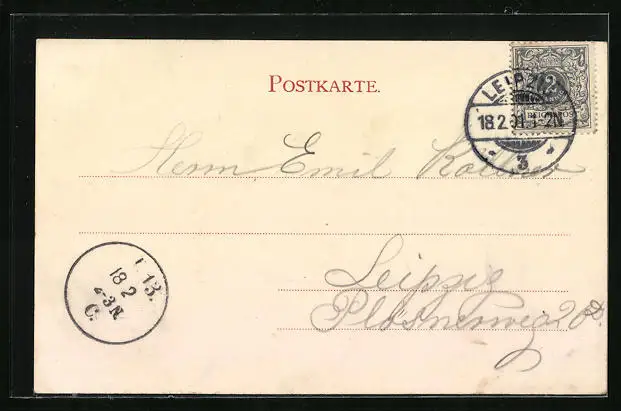 POSTKARTE.
LEIPZIG
18.2.01. 1-2N
3
2
REICHSPOST
Herrn Emil
Leipzig
13.
18 2
2-3N.
C.